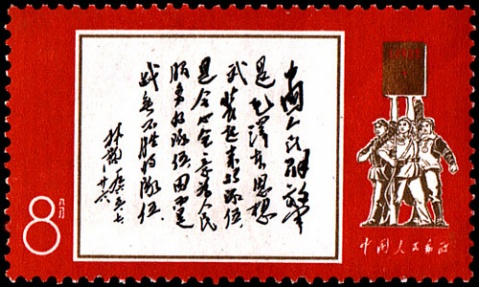 中国人民解放军
是毛泽东思想
武装起来的队伍，
是全心全意为人民
服务的队伍，因而是
战无不胜的队伍。
林彪
廿六
8
中国人民邮政